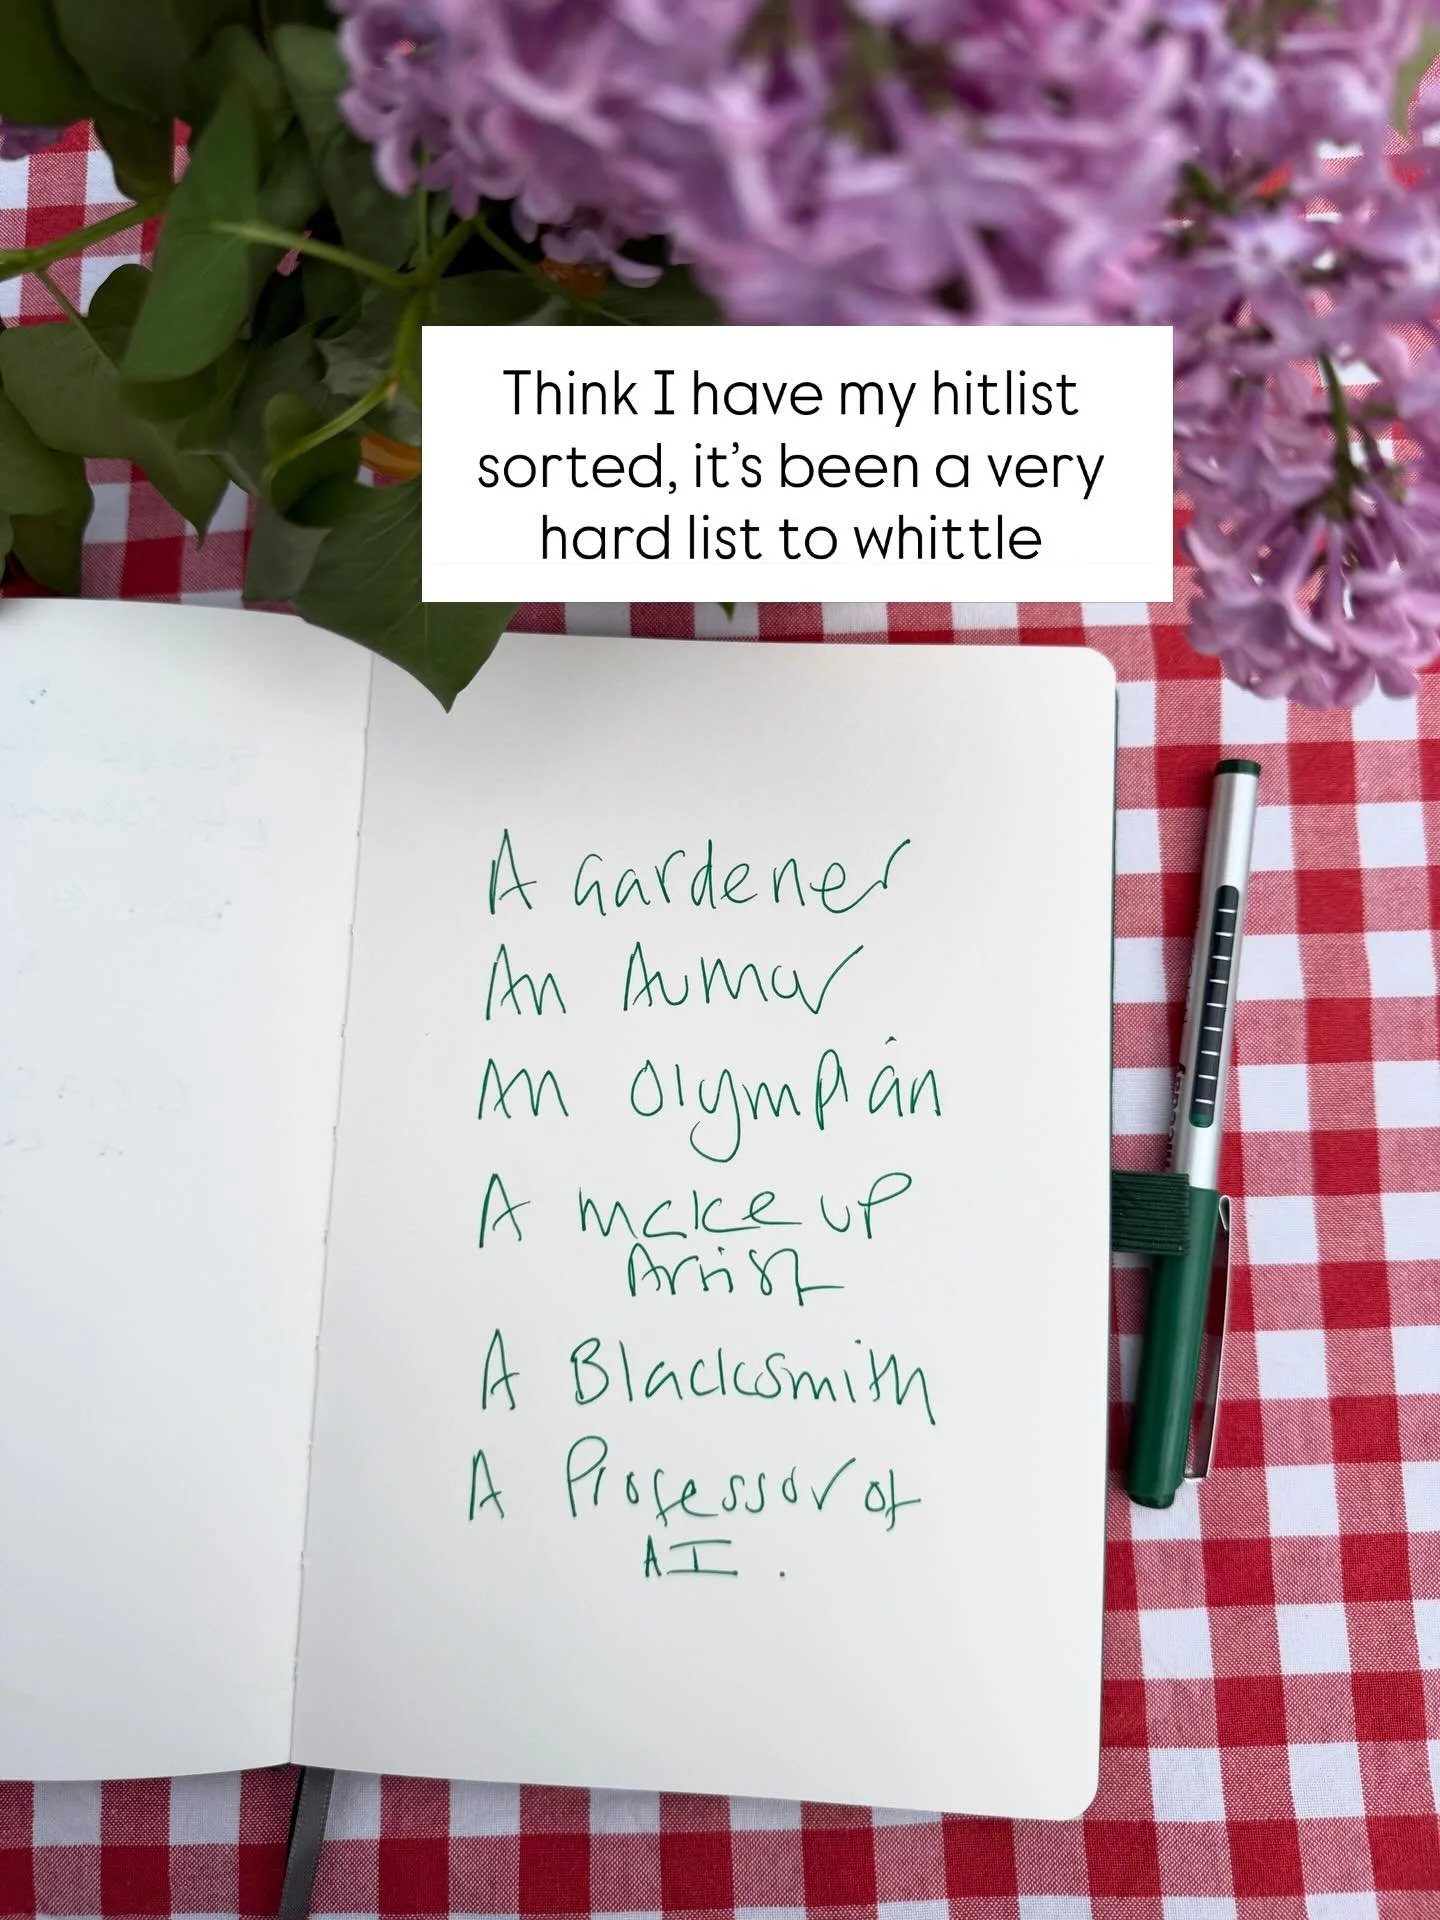 Think I have my hitlist
sorted, it's been a very
hard list to whittle
A Gardener
An
An Olympian
A make up
Artist
A Blacksmith
A Professor of
AI.